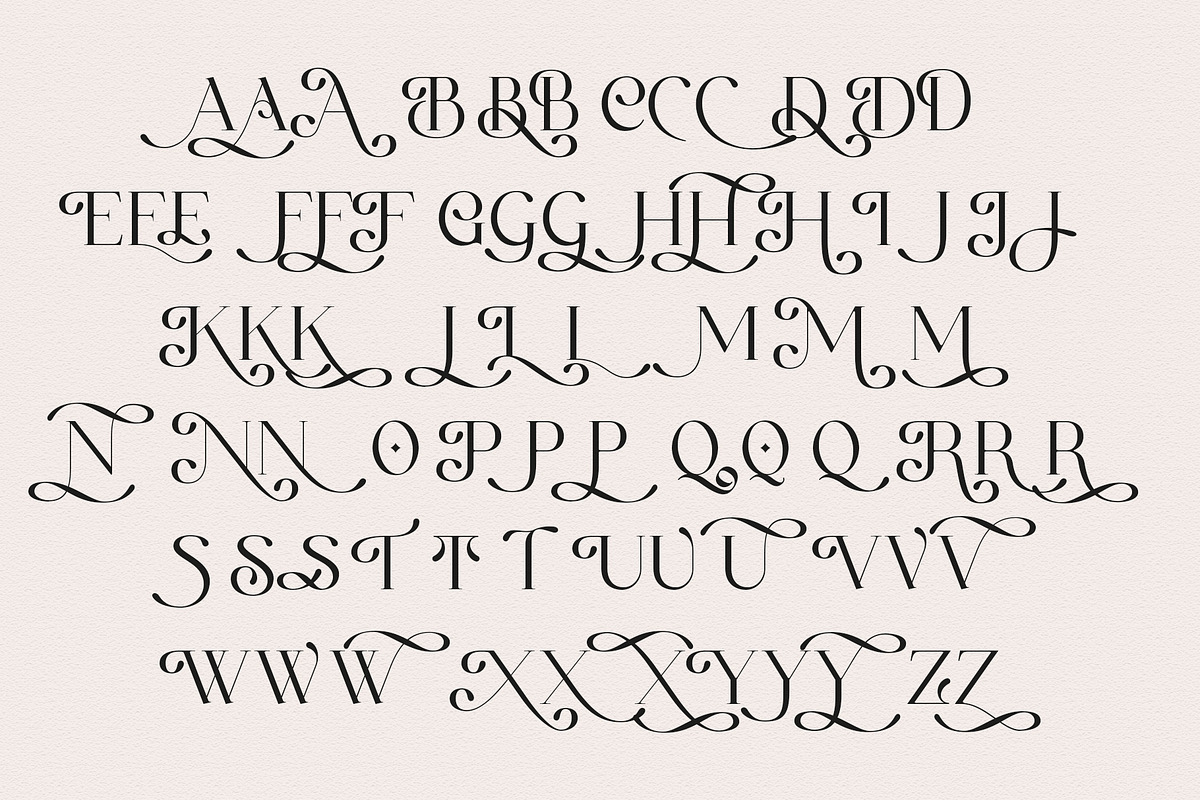 AAA BBB CCC DDD
EEE FFF GGG HHH I J IJ
KKK LLL MMM
N NN O PPP QQQ RRR
SSS TTT UUU VVV
WWW XXX YYY ZZ